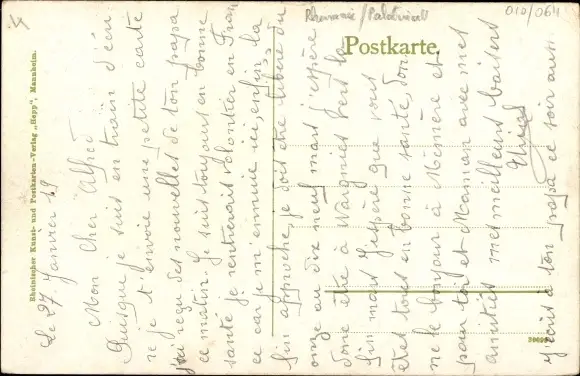 Rhénanie / Palatinat
010/064
Postkarte.
Rheinischer Kunst- und Postkarten-Verlag „Hepp", Mannheim.
Le 27 Janvier 19
Mon Cher Alfred
Puisque je suis en train d'écri
re je t'envoie une petite carte
j'ai reçu des nouvelles de ton papa
ce matin. Je suis toujours en bonne
santé je rentrerais volontier en Fran
ce car je m'ennuie ici, enfin la
fin approche, je dois être libéré du
onze au dix neuf mars j'espère
donc être à Wargnies vers la
fin mars J'espère que vous
êtes tous en bonne santé, don
ne le bonjour à Mémère et
pour toi et Maman avec mes
amitiés mes meilleurs baisers
J'écris à ton papa ce soir aussi